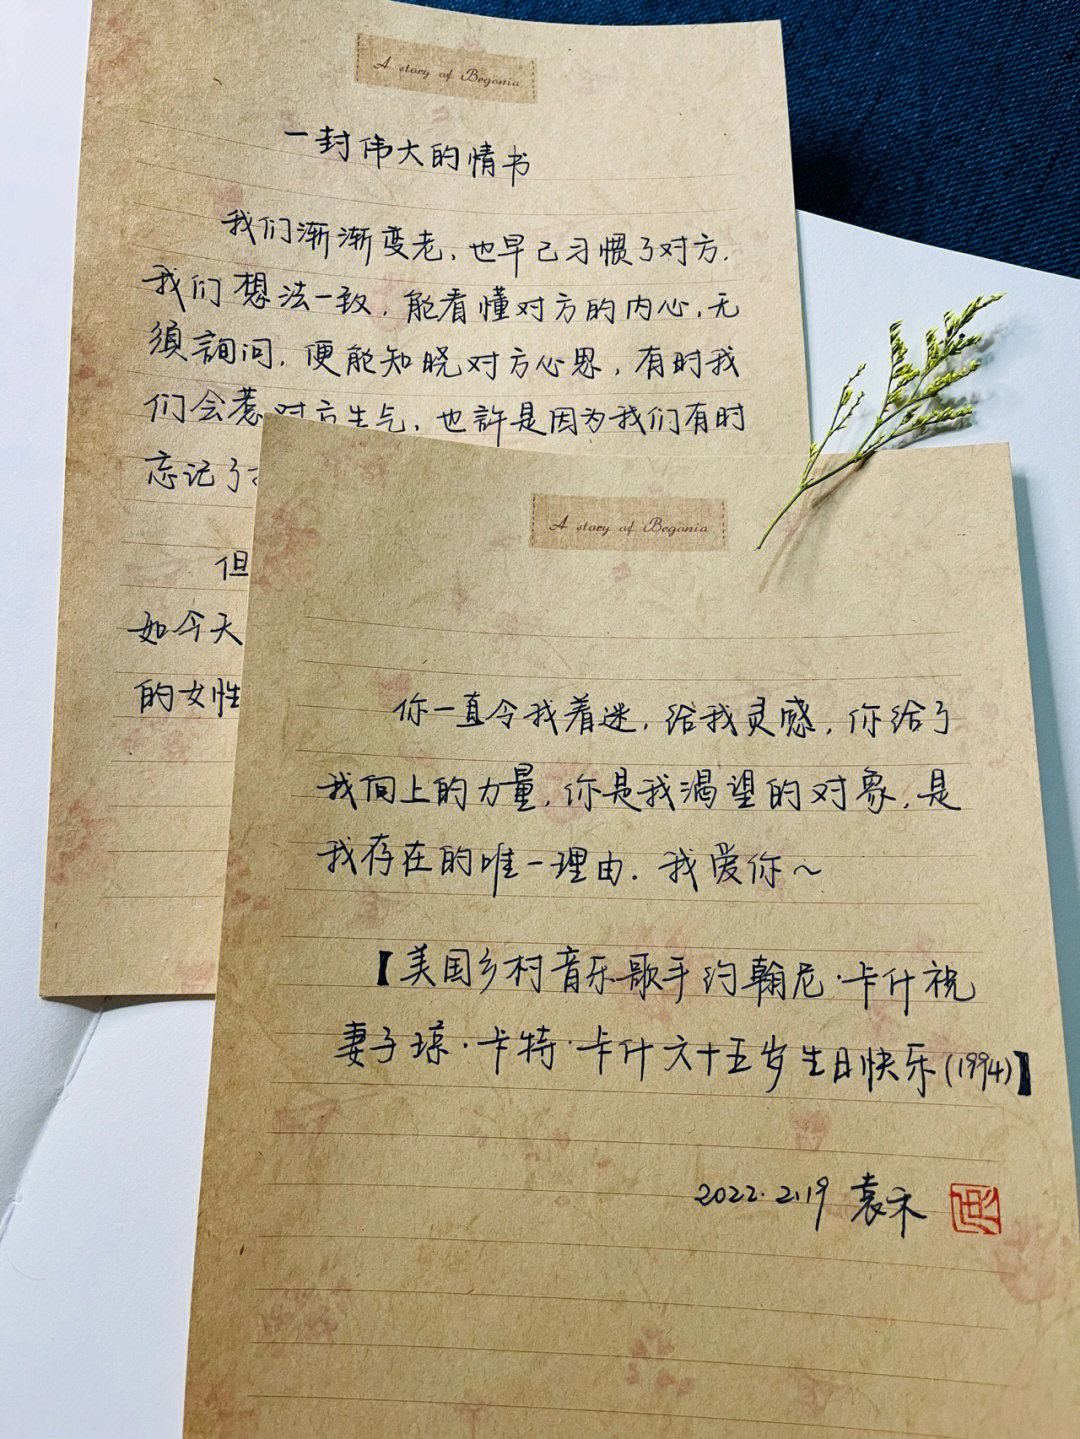 A story of Begonia
一封伟大的情书
我们渐渐变老,也早已习惯了对方.
我们想法一致.能看懂对方的内心,无
須詢问,便能知晓对方心思,有时我
们会惹对方生气,也許是因为我们有时
忘记了
但
如今天
的女性
A story of Begonia
你一直令我着迷,给我灵感,你给了
我向上的力量,你是我渴望的对象,是
我存在的唯一理由.我爱你~
【美国乡村音乐歌手约翰尼·卡什祝
妻子琼·卡特·卡什六十五岁生日快乐(1994)】
2022.2.19 袁禾